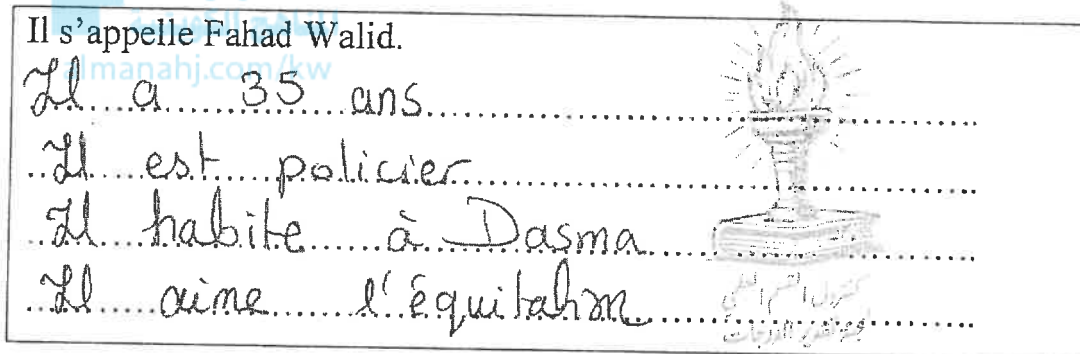 المناهج الكويتية
almanahj.com/kw
Il s'appelle Fahad Walid.
Il a 35 ans
Il est policier
Il habite à Dasma
Il aime l'équitation